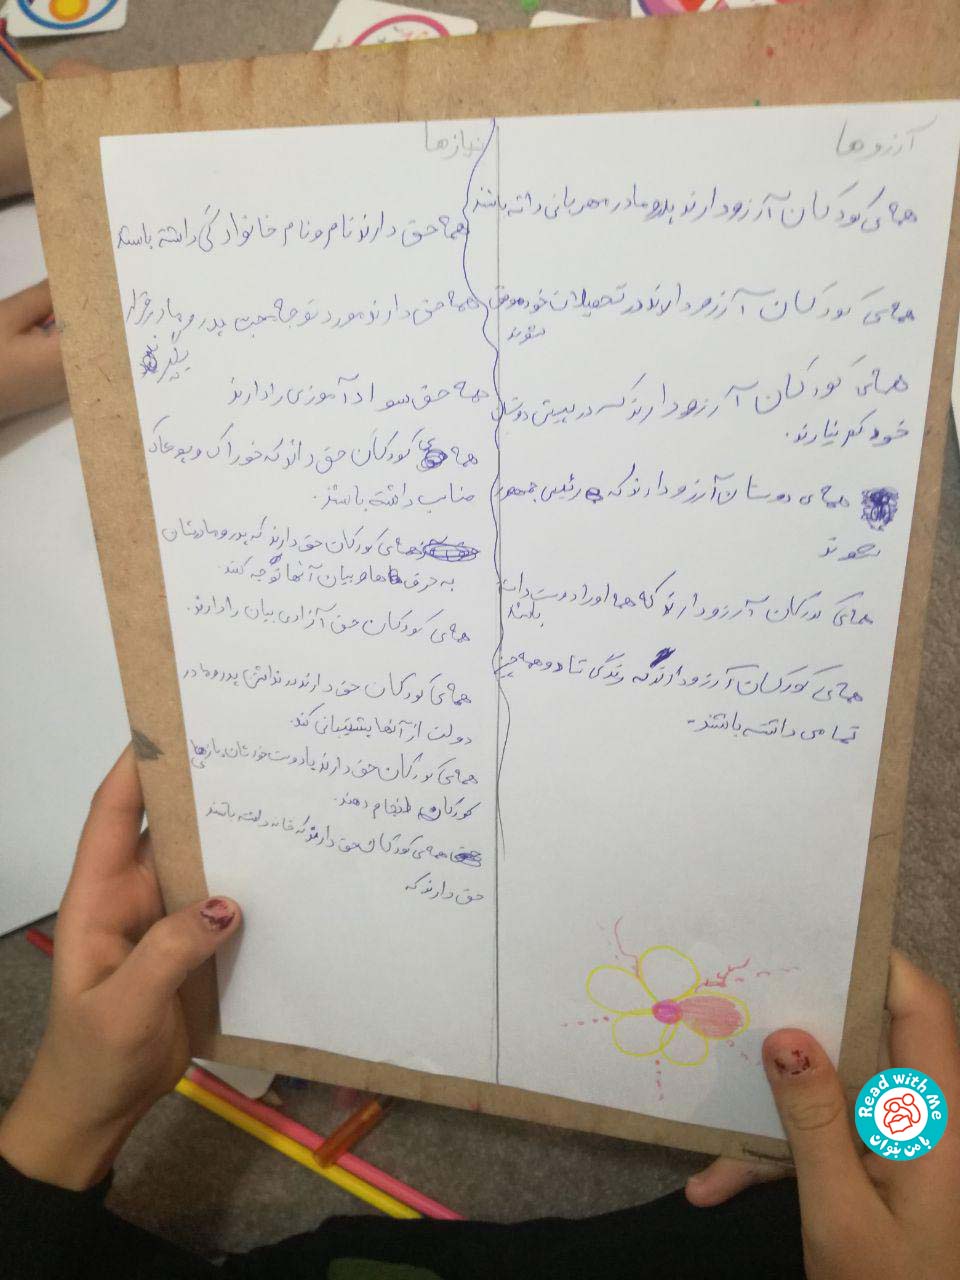 آرزوها
همه‌ی کودکان آرزو دارند پدرو مادر مهربانی داشته باشند
همه‌ی کودکان آرزو دارند در تحصیلات خود موفق
شوند
همه‌ی کودکان آرزو دارند که در پیش دوستان
خود کم نیارند.
همه‌ی دوستان آرزو دارند که رئیس جمهور
شوند
همه‌ی کودکان آرزو دارند که همه اورا دوست داشته
باشند
همه‌ی کودکان آرزو دارند که زندگی شاد و همه چیز
تمامی داشته باشند.
نیازها
همه حق دارند نام و نام خانوادگی داشته باشند
همه حق دارند مورد توجه پدر و مادر قرار
بگیرند
همه حق سواد آموزی را دارند
همه‌ی کودکان حق دارند که خوراک و پوشاک
مناسب داشته باشند.
همه‌ی کودکان حق دارند که پدر و مادرشان
به حرف ها و بیان آنها توجه کنند.
همه‌ی کودکان حق آزادی بیان را دارند.
همه‌ی کودکان حق دارند در نداشتن پدر و مادر
دولت از آنها پشتیبانی کند.
همه‌ی کودکان حق دارند با دوست خودشان بازی های
کودکان انجام دهند.
همه‌ی کودکان حق دارند که خانه داشته باشند
حق دارند که
Read with Me
با من بخوان